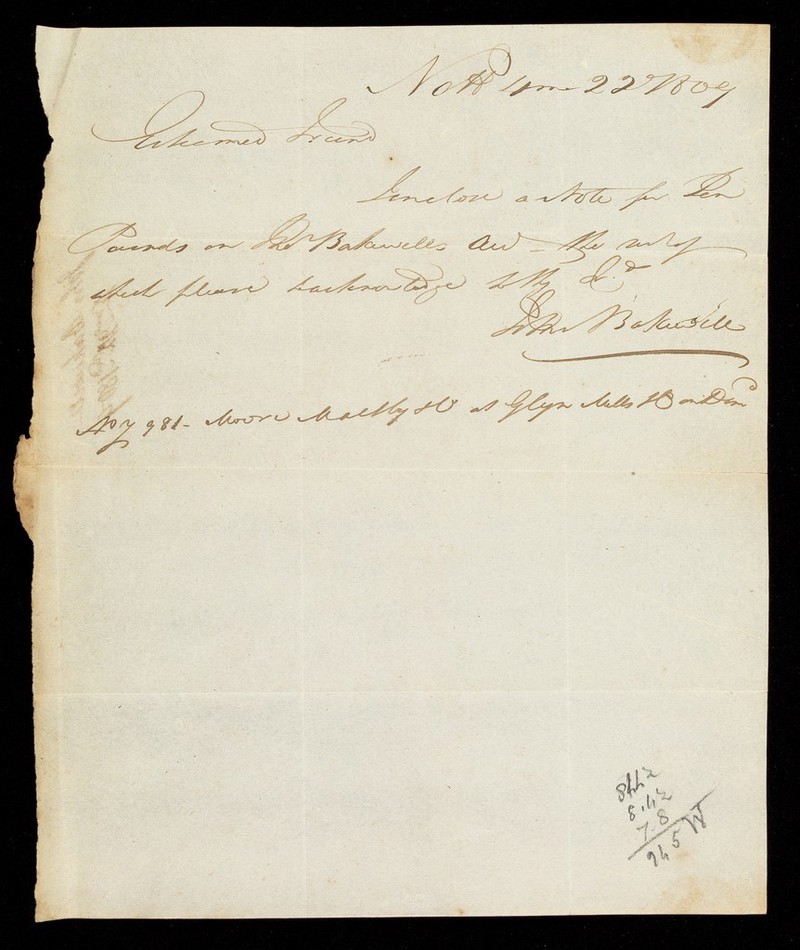 Nottm 4mo 22d 1809
Esteemed Friend
I enclose a Note for Ten
Pounds on Thos Bakewells acct – the rect of
which please to acknowledge to thy Fd
John Bakewill
No 7981 – Moore Maltby & Co at Glyn Mills & Co on Demd
8442
8.42
7-8
945 W